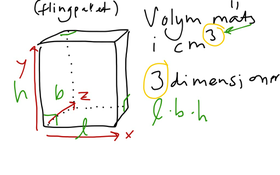 (flingpaket)
Volym mäts
i cm³
3 dimensioner
l · b · h
y
h
b
z
l
x